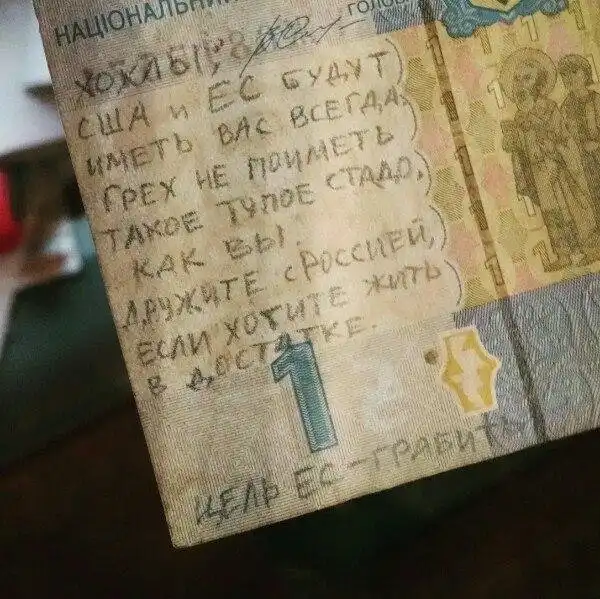 НАЦІОНАЛЬНИЙ
ГОЛОВ
ХОХЛЫ,
США и ЕС БУДУТ
ИМЕТЬ ВАС ВСЕГДА,
ГРЕХ НЕ ПОИМЕТЬ
ТАКОЕ ТУПОЕ СТАДО,
КАК ВЫ.
ДРУЖИТЕ с РОССИЕЙ,
ЕСЛИ ХОТИТЕ ЖИТЬ
В ДОСТАТКЕ.
1
ЦЕЛЬ ЕС-ГРАБИТЬ